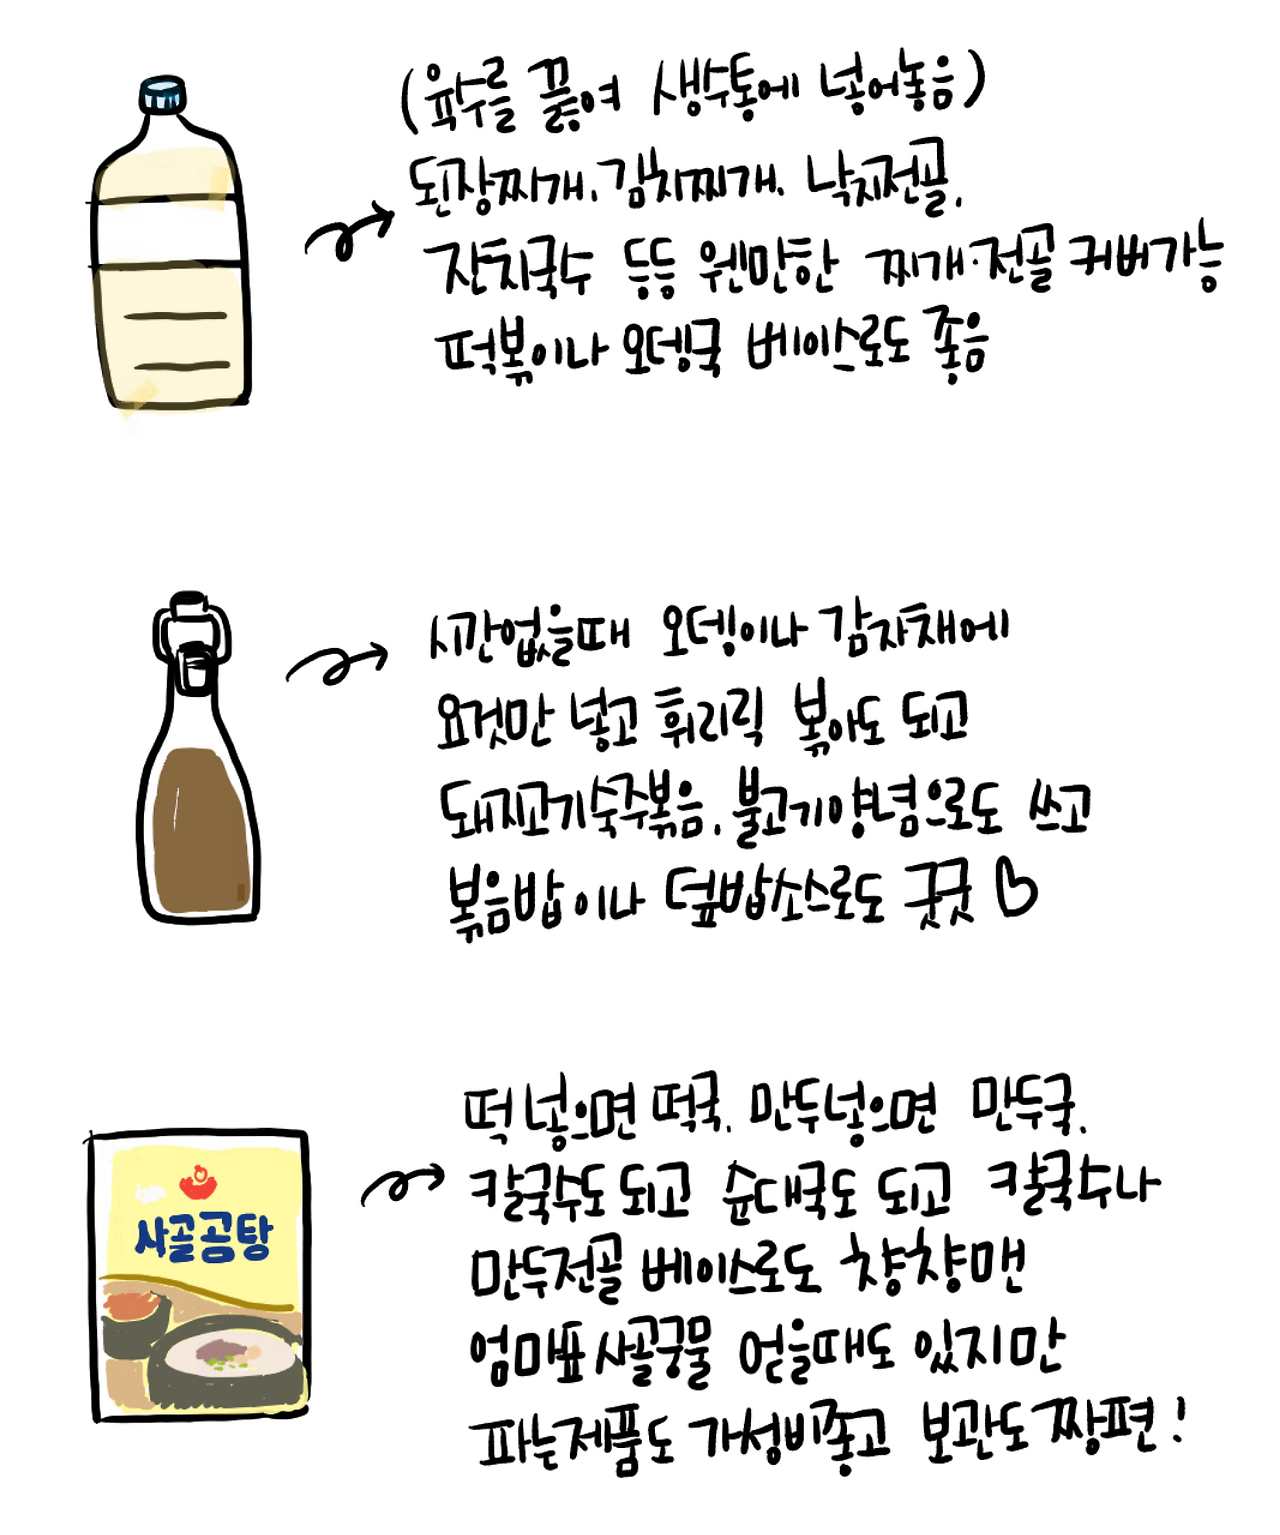 (육수를 끓여 생수통에 넣어놓음)
된장찌개. 김치찌개. 낙지전골.
잔치국수 등등 웬만한 찌개·전골 커버가능
떡볶이나 오뎅국 베이스로도 좋음
시간없을때 오뎅이나 감자채에
요것만 넣고 휘리릭 볶아도 되고
돼지고기숙주볶음. 불고기양념으로도 쓰고
볶음밥이나 덮밥소스로도 굿굿
떡 넣으면 떡국. 만두넣으면 만두국.
칼국수도 되고 순대국도 되고 칼국수나
만두전골 베이스로도 챵챵맨
사골곰탕
엄마표 사골국물 얻을때도 있지만
파는제품도 가성비좋고 보관도 짱편!